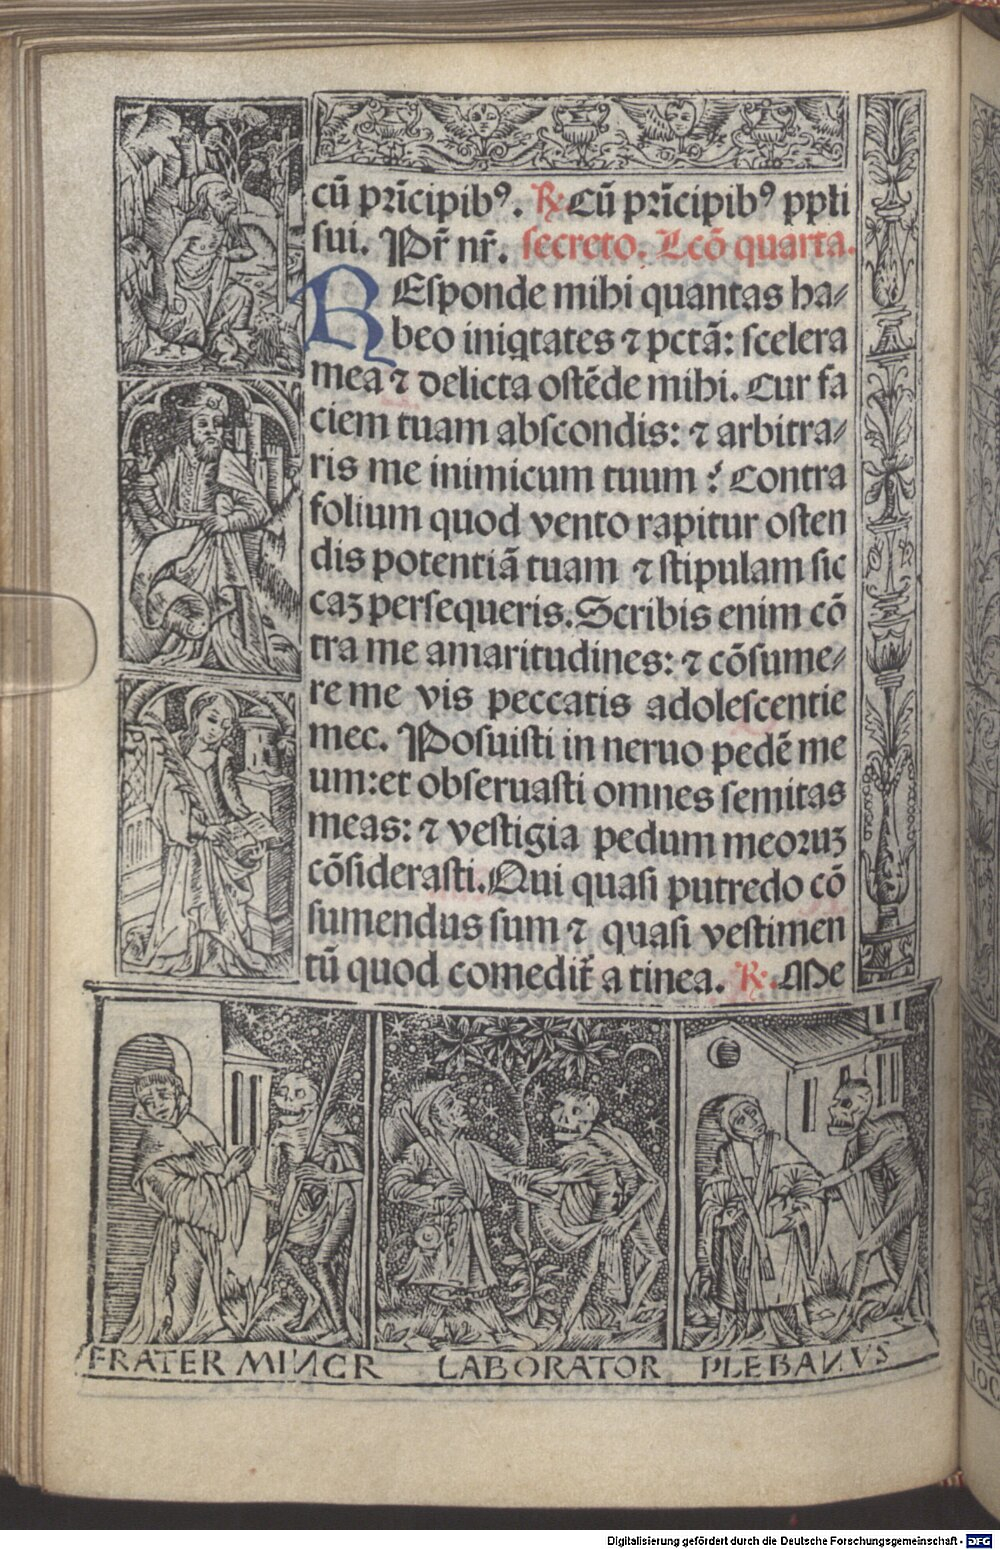 cū prīcipibꝰ. ℟. Cū prīcipibꝰ ppli
sui. Pr̄ nr̄. secreto. Leō quarta.
REsponde mihi quantas ha⸗
beo iniqtates ⁊ pctā: scelera
mea ⁊ delicta ostēde mihi. Cur fa
ciem tuam abscondis: ⁊ arbitra⸗
ris me inimicum tuum? Contra
folium quod vento rapitur osten
dis potentiā tuam ⁊ stipulam sic
caꝫ persequeris. Scribis enim cō
tra me amaritudines: ⁊ cōsume⸗
re me vis peccatis adolescentie
mec. Posuisti in neruo pedē me
um: et obseruasti omnes semitas
meas: ⁊ vestigia pedum meoruꝫ
cōsiderasti. Qui quasi putredo cō
sumendus sum ⁊ quasi vestimen
tū quod comedit̄ a tinea. ℟. Me
FRATER MINCR LABORATOR PLEBANVS
Digitalisierung gefördert durch die Deutsche Forschungsgemeinschaft - DFG